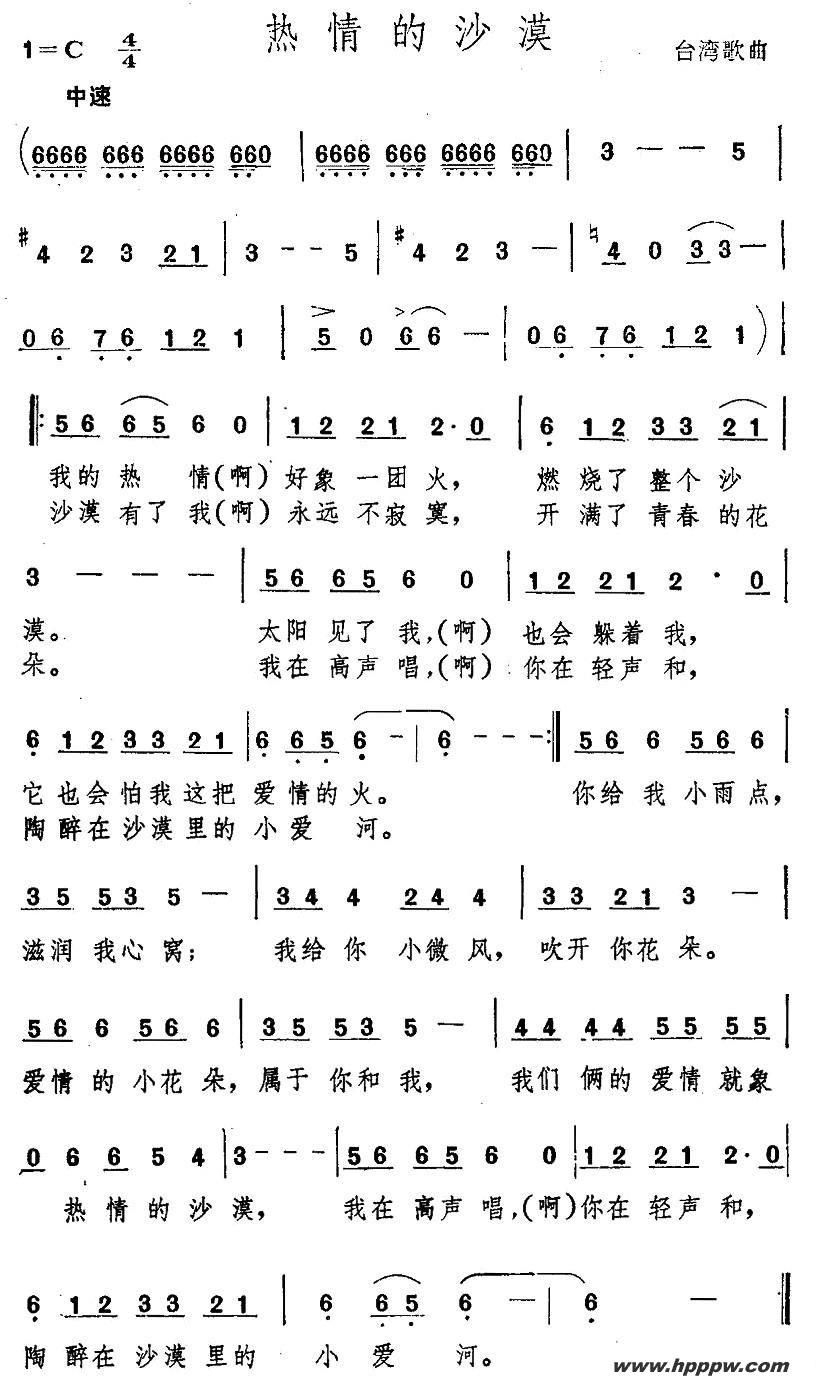 热情的沙漠
1=C 4/4
台湾歌曲
中速
(6666 666 6666 660 | 6666 666 6666 660 | 3 — — 5
#4 2 3 21 | 3 - - 5 | #4 2 3 — | ♮4 0 33— |
06 76 12 1 | 5 0 66 — | 06 76 12 1) |
‖: 56 65 6 0 | 12 21 2·0 | 6 12 33 21 |
我的热 情(啊)好象一团火, 燃烧了整个沙
沙漠有了我(啊)永远不寂寞, 开满了青春的花
3 — — — | 56 65 6 0 | 12 21 2 · 0 |
漠。 太阳见了我,(啊) 也会躲着我,
朵。 我在高声唱,(啊) 你在轻声和,
6 12 33 21 | 6 65 6 - | 6 - - - :‖ 56 6 56 6 |
它也会怕我这把爱情的火。 你给我小雨点,
陶醉在沙漠里的小爱 河。
35 53 5 — | 34 4 24 4 | 33 21 3 — |
滋润我心窝; 我给你小微风, 吹开你花朵。
56 6 56 6 | 35 53 5 — | 44 44 55 55 |
爱情的小花朵,属于你和我, 我们俩的爱情就象
0 6 6 5 4 | 3 - - - | 56 65 6 0 | 12 21 2·0 |
热情的沙漠, 我在高声唱,(啊)你在轻声和,
6 12 33 21 | 6 65 6 — | 6 — — ‖
陶醉在沙漠里的 小爱 河。
www.hpppw.com